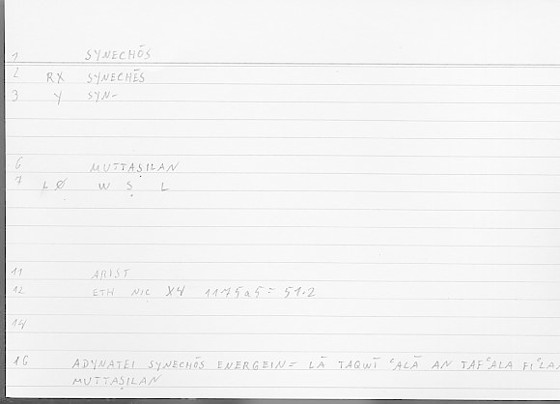 1 SYNECHŌS
2 RX SYNECHĒS
3 Y SYN-
6 MUTTAṢILAN
7 LØ W Ṣ L
11 ARIST
12 ETH NIC X4 1175a5 = 51.2
14
16 ADYNATEI SYNECHŌS ENERGEIN = LĀ TAQWĪ ʿALĀ AN TAFʿALA
MUTTAṢILAN